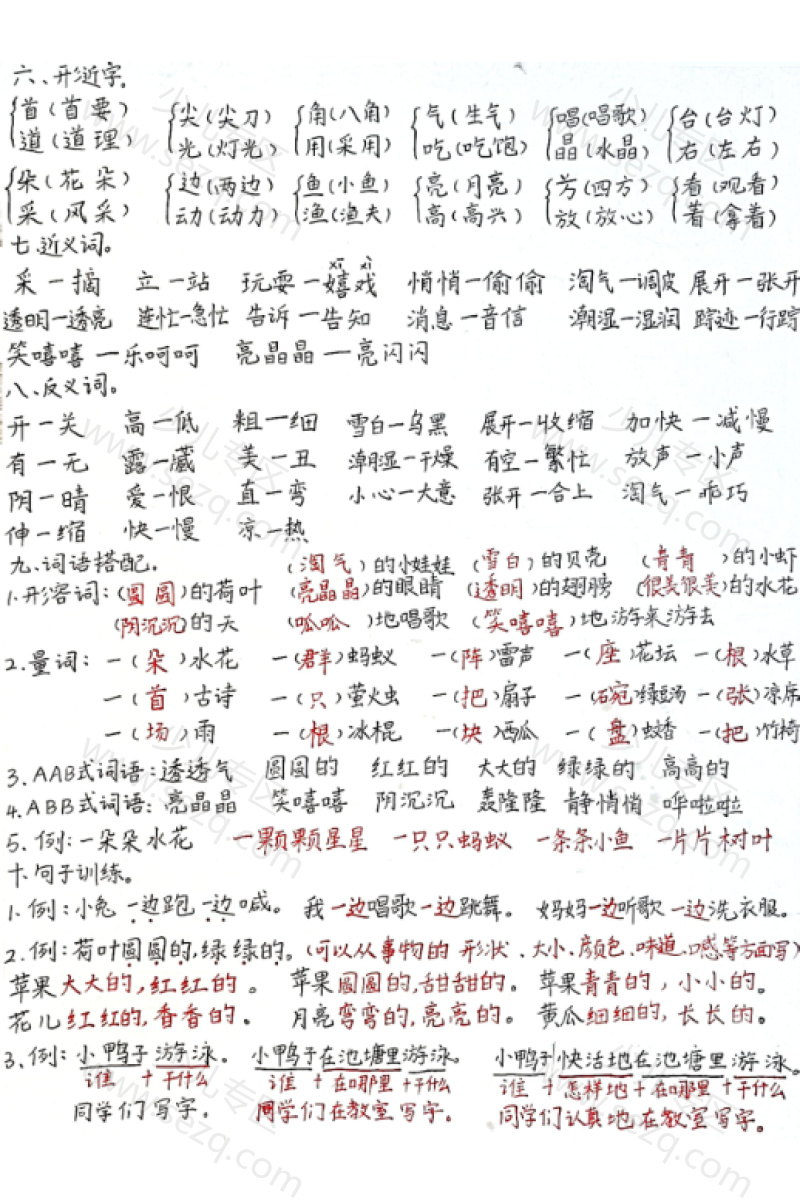 六、形近字.
首(首要) 尖(尖刀) 角(八角) 气(生气) 唱(唱歌) 台(台灯)
道(道理) 光(灯光) 用(采用) 吃(吃饱) 晶(水晶) 右(左右)
朵(花朵) 边(两边) 鱼(小鱼) 亮(月亮) 方(四方) 看(观看)
采(风采) 动(动力) 渔(渔夫) 高(高兴) 放(放心) 着(拿着)
七、近义词。
xī xì
采—摘 立—站 玩耍—嬉戏 悄悄—偷偷 淘气—调皮 展开—张开
透明—透亮 连忙—急忙 告诉—告知 消息—音信 潮湿—湿润 踪迹—行踪
笑嘻嘻—乐呵呵 亮晶晶—亮闪闪
八、反义词。
开—关 高—低 粗—细 雪白—乌黑 展开—收缩 加快—减慢
有—无 露—藏 美—丑 潮湿—干燥 有空—繁忙 放声—小声
阴—晴 爱—恨 直—弯 小心—大意 张开—合上 淘气—乖巧
伸—缩 快—慢 凉—热
九、词语搭配. (淘气)的小娃娃 (雪白)的贝壳 (青青)的小虾
1.形容词:(圆圆)的荷叶 (亮晶晶)的眼睛 (透明)的翅膀 (很美很美)的水花
(阴沉沉)的天 (呱呱)地唱歌 (笑嘻嘻)地游来游去
2.量词: 一(朵)水花 一(群)蚂蚁 一(阵)雷声 一(座)花坛 一(根)水草
一(首)古诗 一(只)萤火虫 一(把)扇子 一(碗)绿豆汤 一(张)凉席
一(场)雨 一(根)冰棍 一(块)西瓜 一(盘)蚊香 一(把)竹椅
3.AAB式词语:透透气 圆圆的 红红的 大大的 绿绿的 高高的
4.ABB式词语:亮晶晶 笑嘻嘻 阴沉沉 轰隆隆 静悄悄 哗啦啦
5.例:一朵朵水花 一颗颗星星 一只只蚂蚁 一条条小鱼 一片片树叶
十.句子训练。
1.例:小兔一边跑一边喊。 我一边唱歌一边跳舞。 妈妈一边听歌一边洗衣服。
2.例:荷叶圆圆的,绿绿的。(可以从事物的形状、大小、颜色、味道、口感等方面写)
苹果大大的,红红的。 苹果圆圆的,甜甜的。 苹果青青的,小小的。
花儿红红的,香香的。 月亮弯弯的,亮亮的。 黄瓜细细的,长长的。
3.例:小鸭子游泳。 小鸭子在池塘里游泳。 小鸭子快活地在池塘里游泳。
谁+干什么 谁+在哪里+干什么 谁+怎样地+在哪里+干什么
同学们写字. 同学们在教室写字。 同学们认真地在教室写字。
少儿专区
www.sezq.com